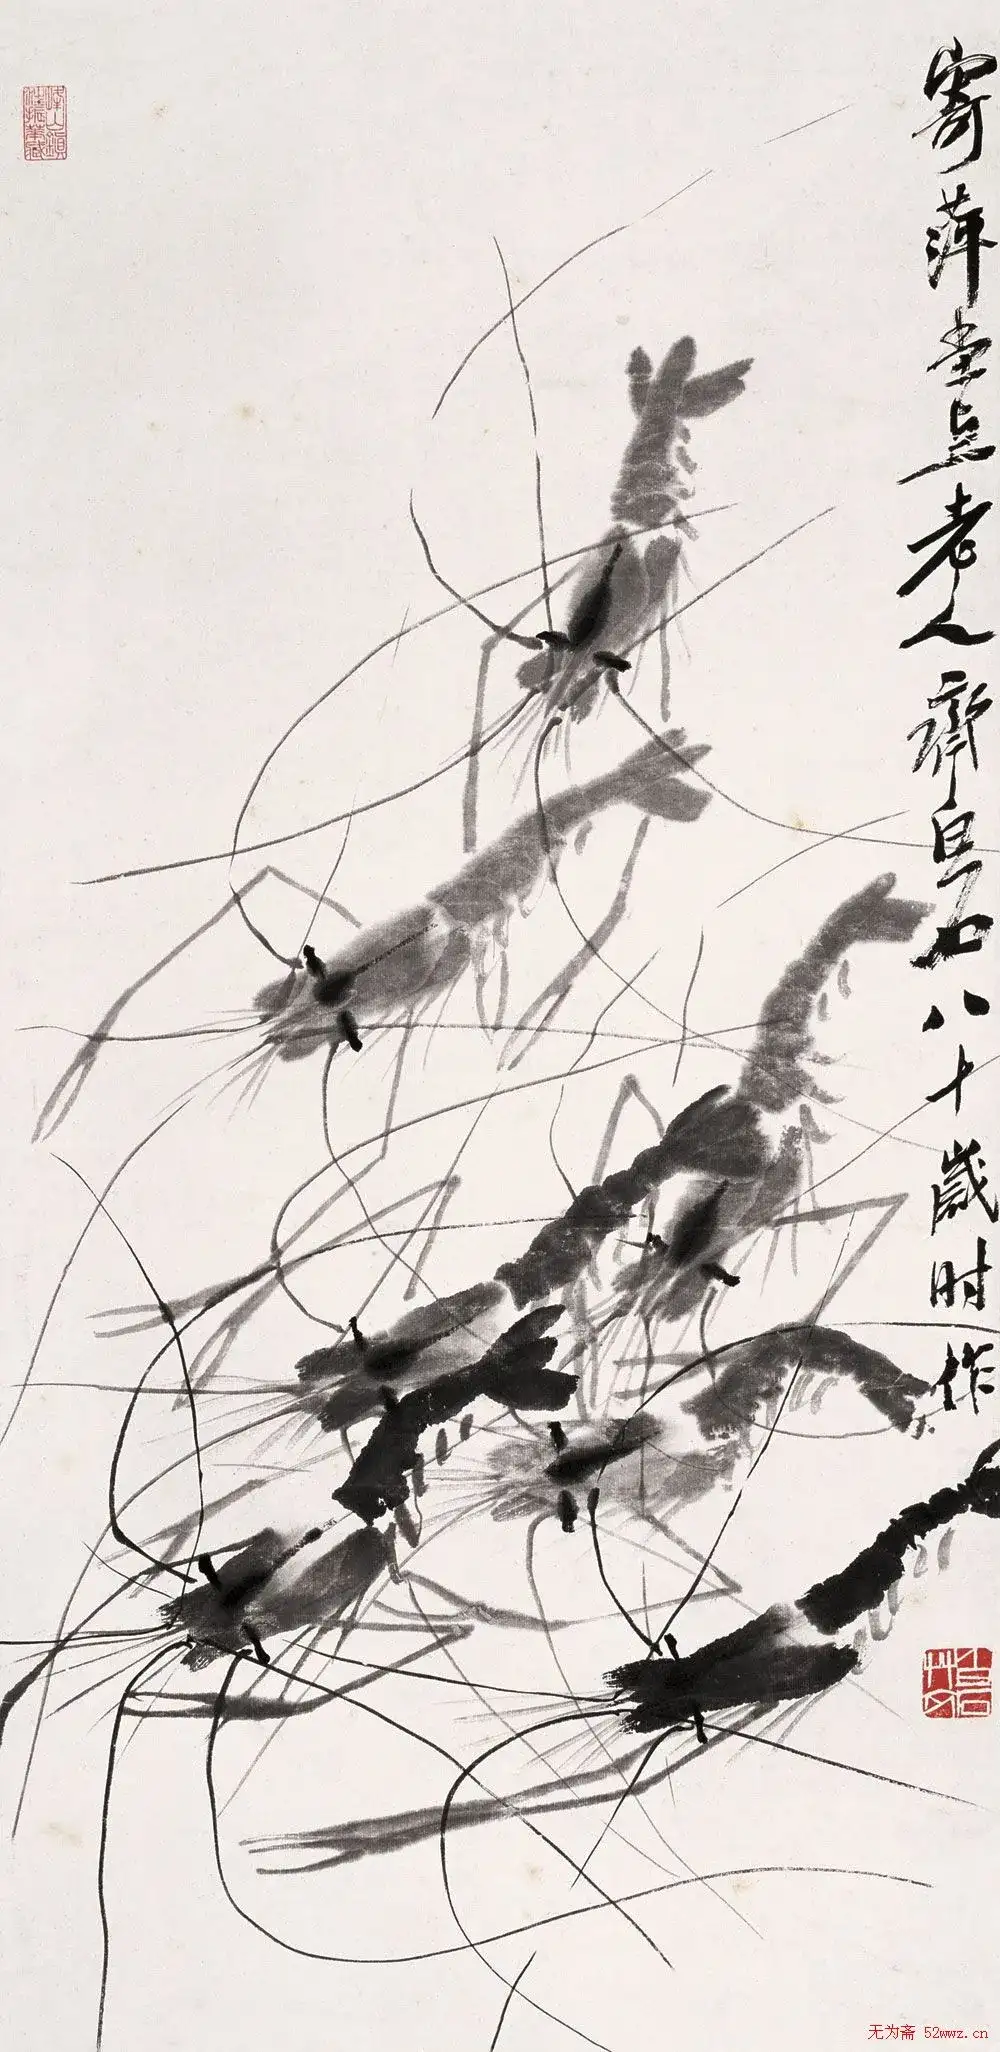 寄萍堂上老人齊白石八十歲时作
无为斋 52wwz.cn